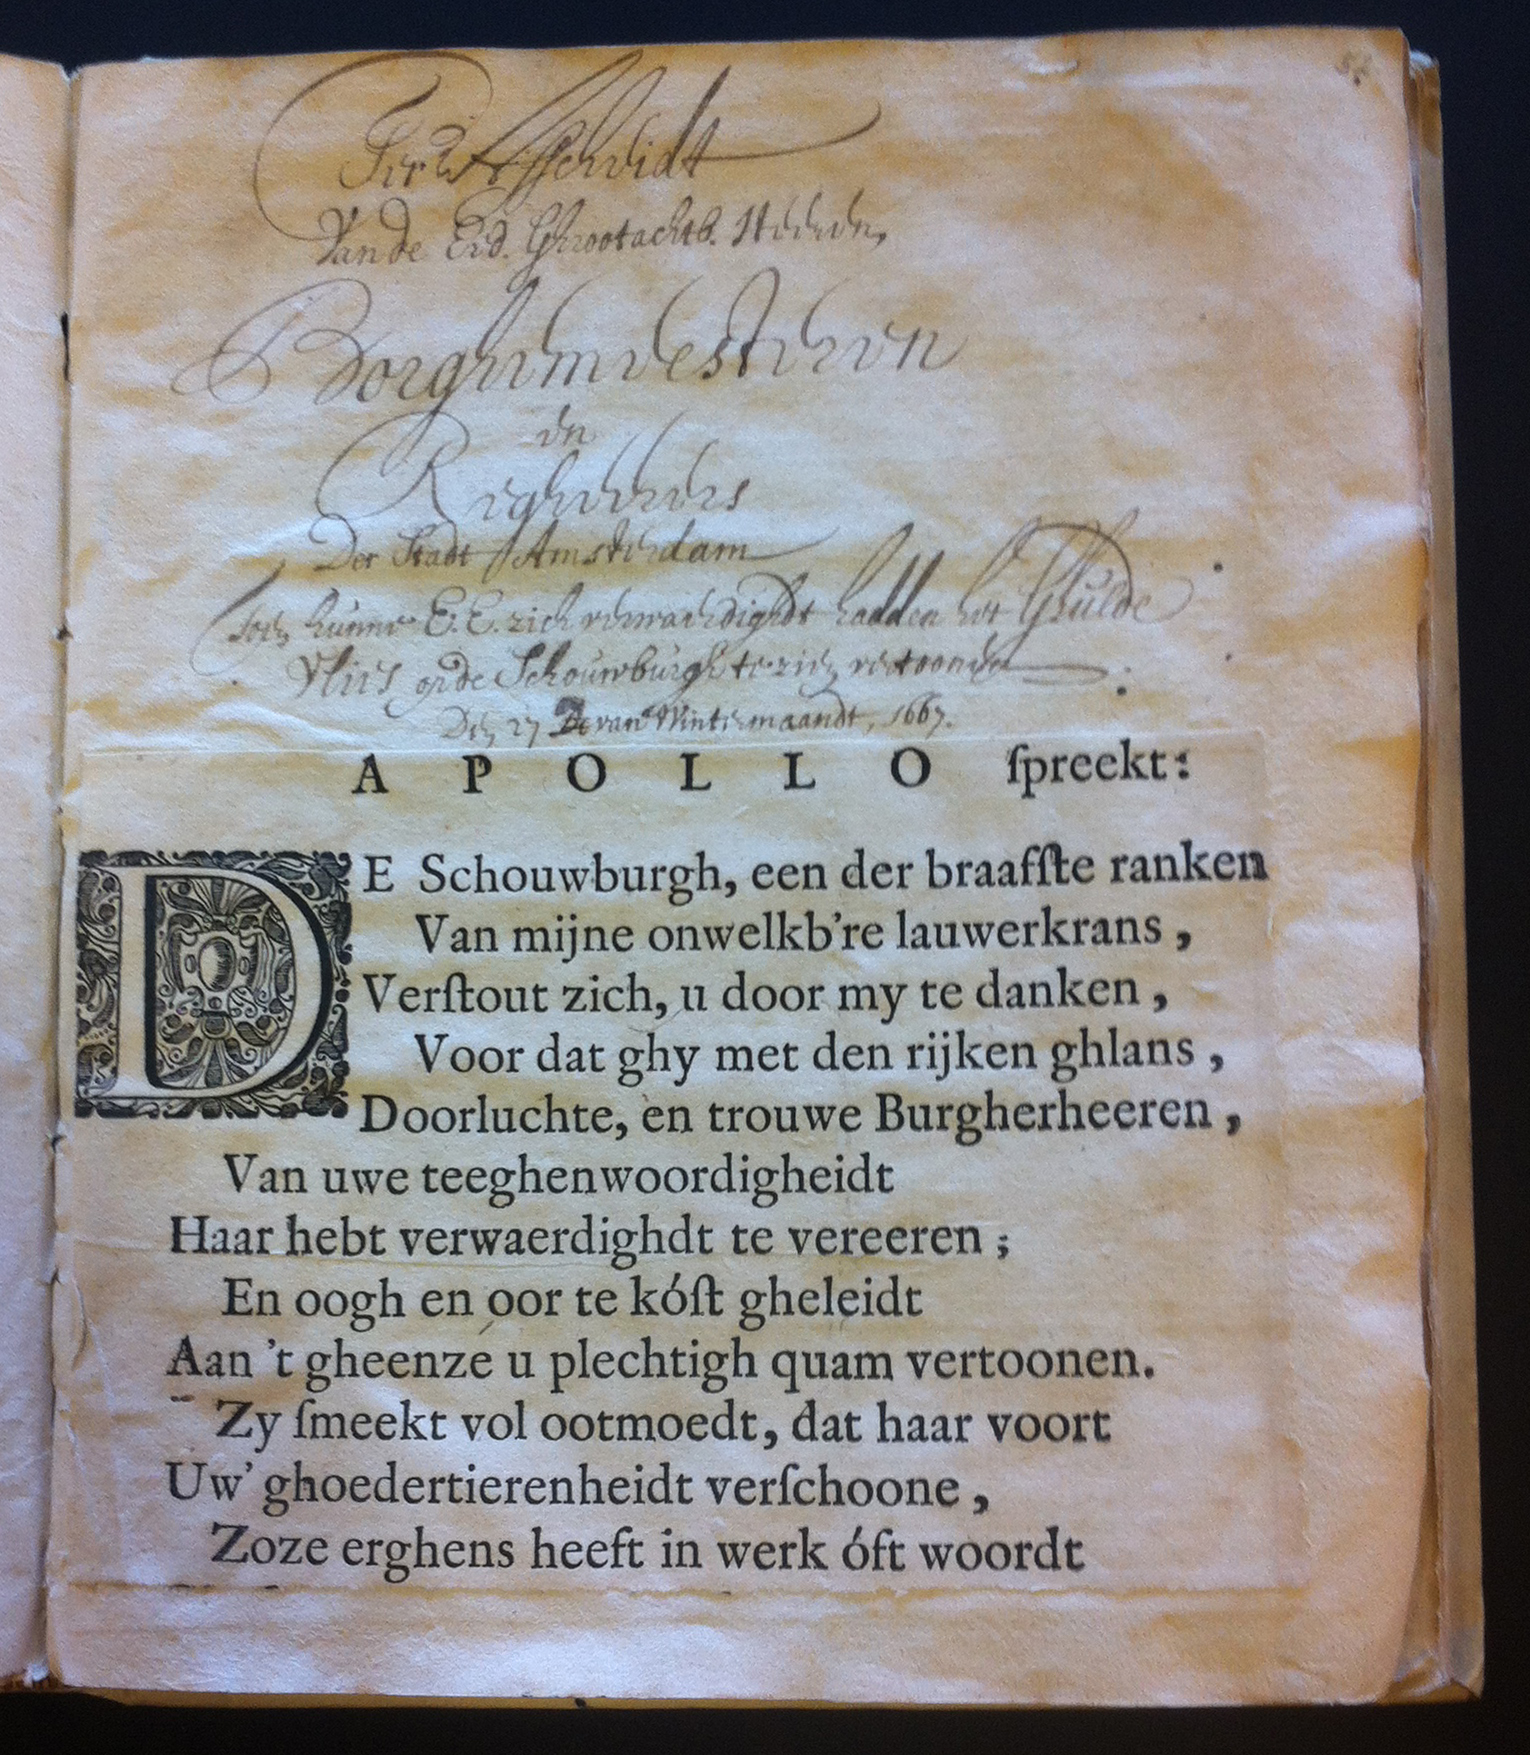 Ter Afscheidt
Van de Eed. Ghrootachtb. Heeren,
Borghemeesteren
en
Regheerders
Der Stadt Amsterdam
toen hunne E.E. zich verwaerdighdt hadden het Ghulde
Vlies op de Schouwburgh te zien vertoonen
Den 27 van Wintermaandt, 1667.
APOLLO ſpreekt:
DE Schouwburgh, een der braafſte ranken
Van mijne onwelkb're lauwerkrans,
Verſtout zich, u door my te danken,
Voor dat ghy met den rijken ghlans,
Doorluchte, en trouwe Burgherheeren,
Van uwe teeghenwoordigheidt
Haar hebt verwaerdighdt te vereeren;
En oogh en oor te kóſt gheleidt
Aan 't gheenze u plechtigh quam vertoonen.
Zy ſmeekt vol ootmoedt, dat haar voort
Uw' ghoedertierenheidt verſchoone,
Zoze erghens heeft in werk óft woordt